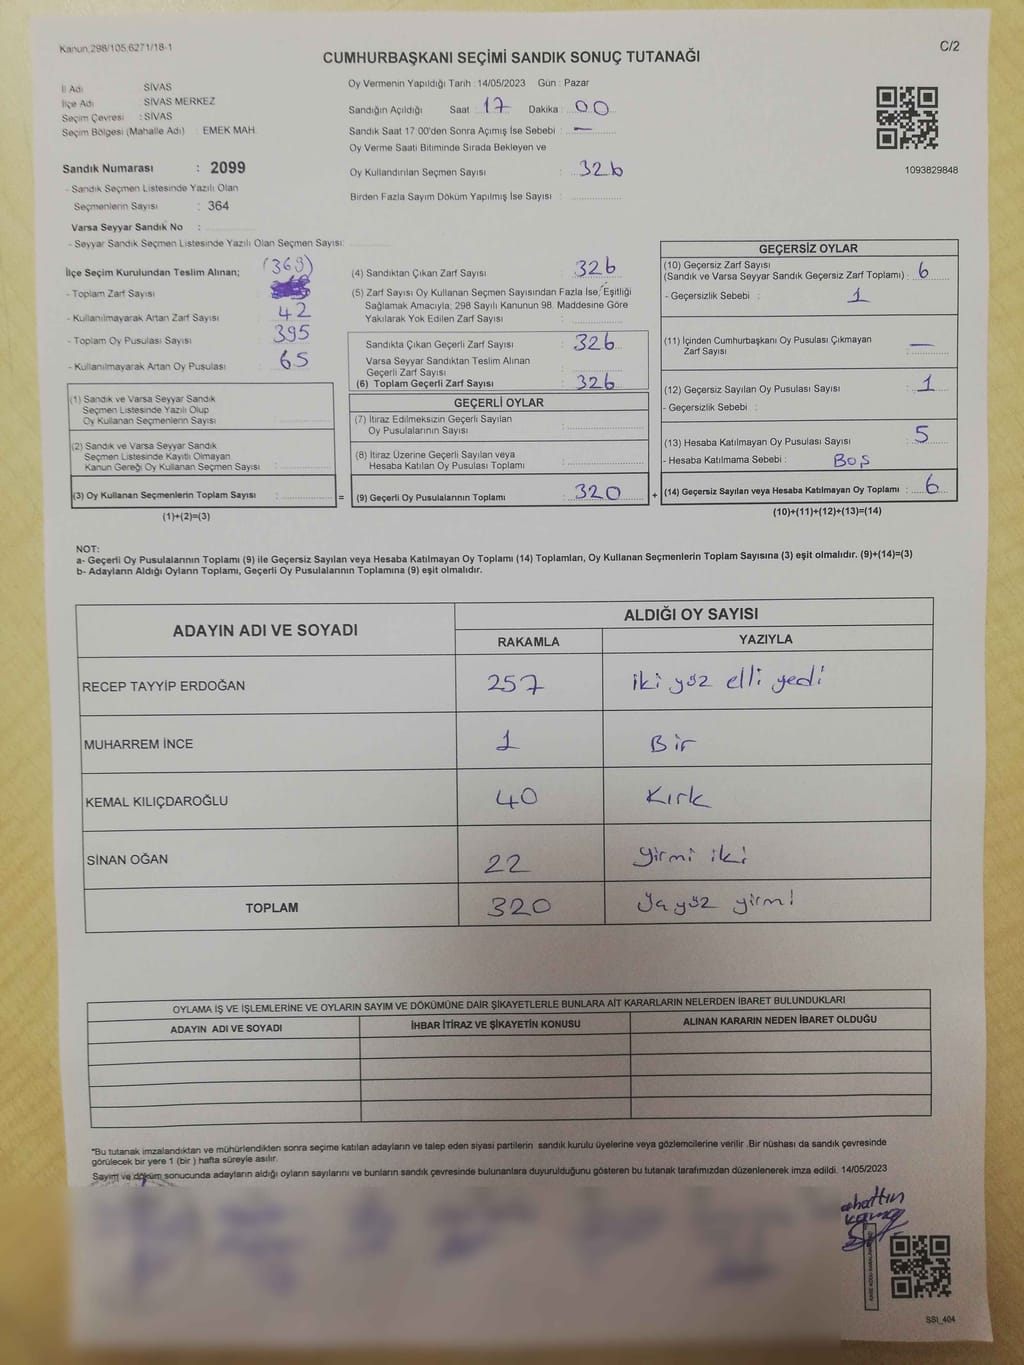 Kanun 298/105.6271/18-1
C/2
CUMHURBAŞKANI SEÇİMİ SANDIK SONUÇ TUTANAĞI
İl Adı : SİVAS
İlçe Adı : SİVAS MERKEZ
Seçim Çevresi : SİVAS
Seçim Bölgesi (Mahalle Adı) : EMEK MAH.
Sandık Numarası : 2099
- Sandık Seçmen Listesinde Yazılı Olan
Seçmenlerin Sayısı : 364
Varsa Seyyar Sandık No :
- Seyyar Sandık Seçmen Listesinde Yazılı Olan Seçmen Sayısı:
Oy Vermenin Yapıldığı Tarih : 14/05/2023 Gün : Pazar
Sandığın Açıldığı Saat : 17 Dakika : 00
Sandık Saat 17:00'den Sonra Açımış İse Sebebi : —
Oy Verme Saati Bitiminde Sırada Bekleyen ve
Oy Kullandırılan Seçmen Sayısı : 326
Birden Fazla Sayım Döküm Yapılmış İse Sayısı :
1093829848
İlçe Seçim Kurulundan Teslim Alınan; (369)
- Toplam Zarf Sayısı :
- Kullanılmayarak Artan Zarf Sayısı : 42
- Toplam Oy Pusulası Sayısı : 395
- Kullanılmayarak Artan Oy Pusulası : 65
(1) Sandık ve Varsa Seyyar Sandık
Seçmen Listesinde Yazılı Olup
Oy Kullanan Seçmenlerin Sayısı :
(2) Sandık ve Varsa Seyyar Sandık
Seçmen Listesinde Kayıtlı Olmayan
Kanun Gereği Oy Kullanan Seçmen Sayısı :
(3) Oy Kullanan Seçmenlerin Toplam Sayısı : =
(1)+(2)=(3)
(4) Sandıktan Çıkan Zarf Sayısı : 326
(5) Zarf Sayısı Oy Kullanan Seçmen Sayısından Fazla İse, Eşitliği
Sağlamak Amacıyla; 298 Sayılı Kanunun 98. Maddesine Göre
Yakılarak Yok Edilen Zarf Sayısı :
Sandıkta Çıkan Geçerli Zarf Sayısı : 326
Varsa Seyyar Sandıktan Teslim Alınan
Geçerli Zarf Sayısı :
(6) Toplam Geçerli Zarf Sayısı : 326
GEÇERLİ OYLAR
(7) İtiraz Edilmeksizin Geçerli Sayılan
Oy Pusulalarının Sayısı :
(8) İtiraz Üzerine Geçerli Sayılan veya
Hesaba Katılan Oy Pusulası Toplamı :
(9) Geçerli Oy Pusulalarının Toplamı : 320 +
GEÇERSİZ OYLAR
(10) Geçersiz Zarf Sayısı
(Sandık ve Varsa Seyyar Sandık Geçersiz Zarf Toplamı) : 6
- Geçersizlik Sebebi : 1
(11) İçinden Cumhurbaşkanı Oy Pusulası Çıkmayan
Zarf Sayısı : —
(12) Geçersiz Sayılan Oy Pusulası Sayısı : 1
- Geçersizlik Sebebi :
(13) Hesaba Katılmayan Oy Pusulası Sayısı : 5
- Hesaba Katılmama Sebebi : Boş
(14) Geçersiz Sayılan veya Hesaba Katılmayan Oy Toplamı : 6
(10)+(11)+(12)+(13)=(14)
NOT:
a- Geçerli Oy Pusulalarının Toplamı (9) ile Geçersiz Sayılan veya Hesaba Katılmayan Oy Toplamı (14) Toplamları, Oy Kullanan Seçmenlerin Toplam Sayısına (3) eşit olmalıdır. (9)+(14)=(3)
b- Adayların Aldığı Oyların Toplamı, Geçerli Oy Pusulalarının Toplamına (9) eşit olmalıdır.
ADAYIN ADI VE SOYADI
ALDIĞI OY SAYISI
RAKAMLA YAZIYLA
RECEP TAYYİP ERDOĞAN 257 iki yüz elli yedi
MUHARREM İNCE 1 Bir
KEMAL KILIÇDAROĞLU 40 Kırk
SİNAN OĞAN 22 yirmi iki
TOPLAM 320 yirmi
OYLAMA İŞ VE İŞLEMLERİNE VE OYLARIN SAYIM VE DÖKÜMÜNE DAİR ŞİKAYETLERLE BUNLARA AİT KARARLARIN NELERDEN İBARET BULUNDUKLARI
ADAYIN ADI VE SOYADI İHBAR İTİRAZ VE ŞİKAYETİN KONUSU ALINAN KARARIN NEDEN İBARET OLDUĞU
"Bu tutanak imzalandıktan ve mühürlendikten sonra seçime katılan adayların ve talep eden siyasi partilerin sandık kurulu üyelerine veya gözlemcilerine verilir .Bir nüshası da sandık çevresinde
görülecek bir yere 1 (bir ) hafta süreyle asılır.
Sayım ve döküm sonucunda adayların aldığı oyların sayılarını ve bunların sandık çevresinde bulunanlara duyurulduğunu gösteren bu tutanak tarafımızdan düzenlenerek imza edildi. 14/05/2023
SSI_404